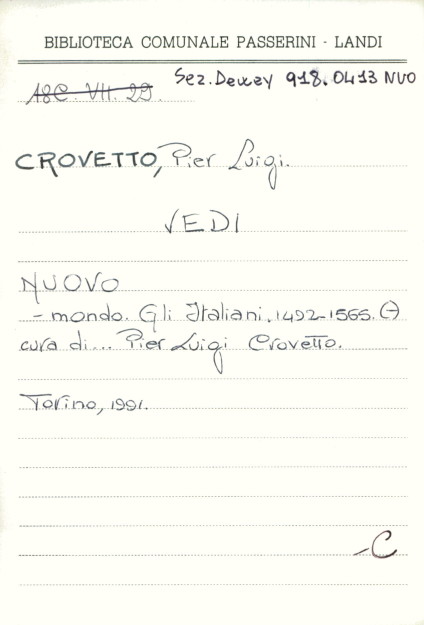 BIBLIOTECA COMUNALE PASSERINI - LANDI
18C. VII. 29. Sez. Dewey 918.0413 NUO
CROVETTO, Pier Luigi.
VEDI
NUOVO
- mondo. Gli Italiani. 1492-1565. (A
cura di... Pier Luigi Crovetto.
Torino, 1991.
-C